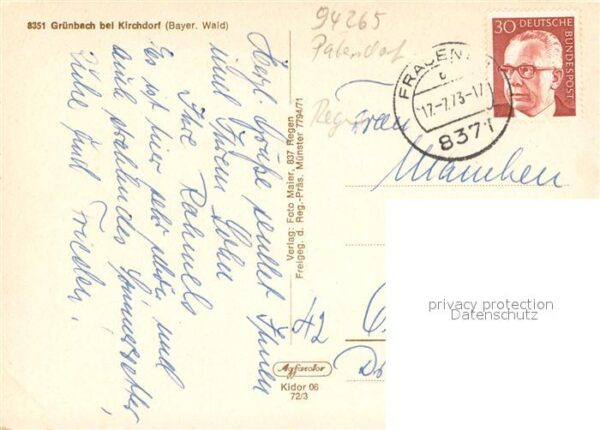 8351 Grünbach bei Kirchdorf (Bayer. Wald)
Herzl. Grüße sendet Ihnen
und Ihrem Sohn
Ihre Rahmels
Es ist hier sehr schön und
auch strahlendes Sommerwetter,
Ruhe und Frieden!
Verlag: Foto Maier, 837 Regen
Freigeg. d. Reg.-Präs. Münster 7794/71
Agfacolor
Kidor 06
72/3
94265
Patersdorf
Regen
30 DEUTSCHE
BUNDESPOST
FRAUEN
17.-7.73-17
8371
Frau
München
42
privacy protection
Datenschutz